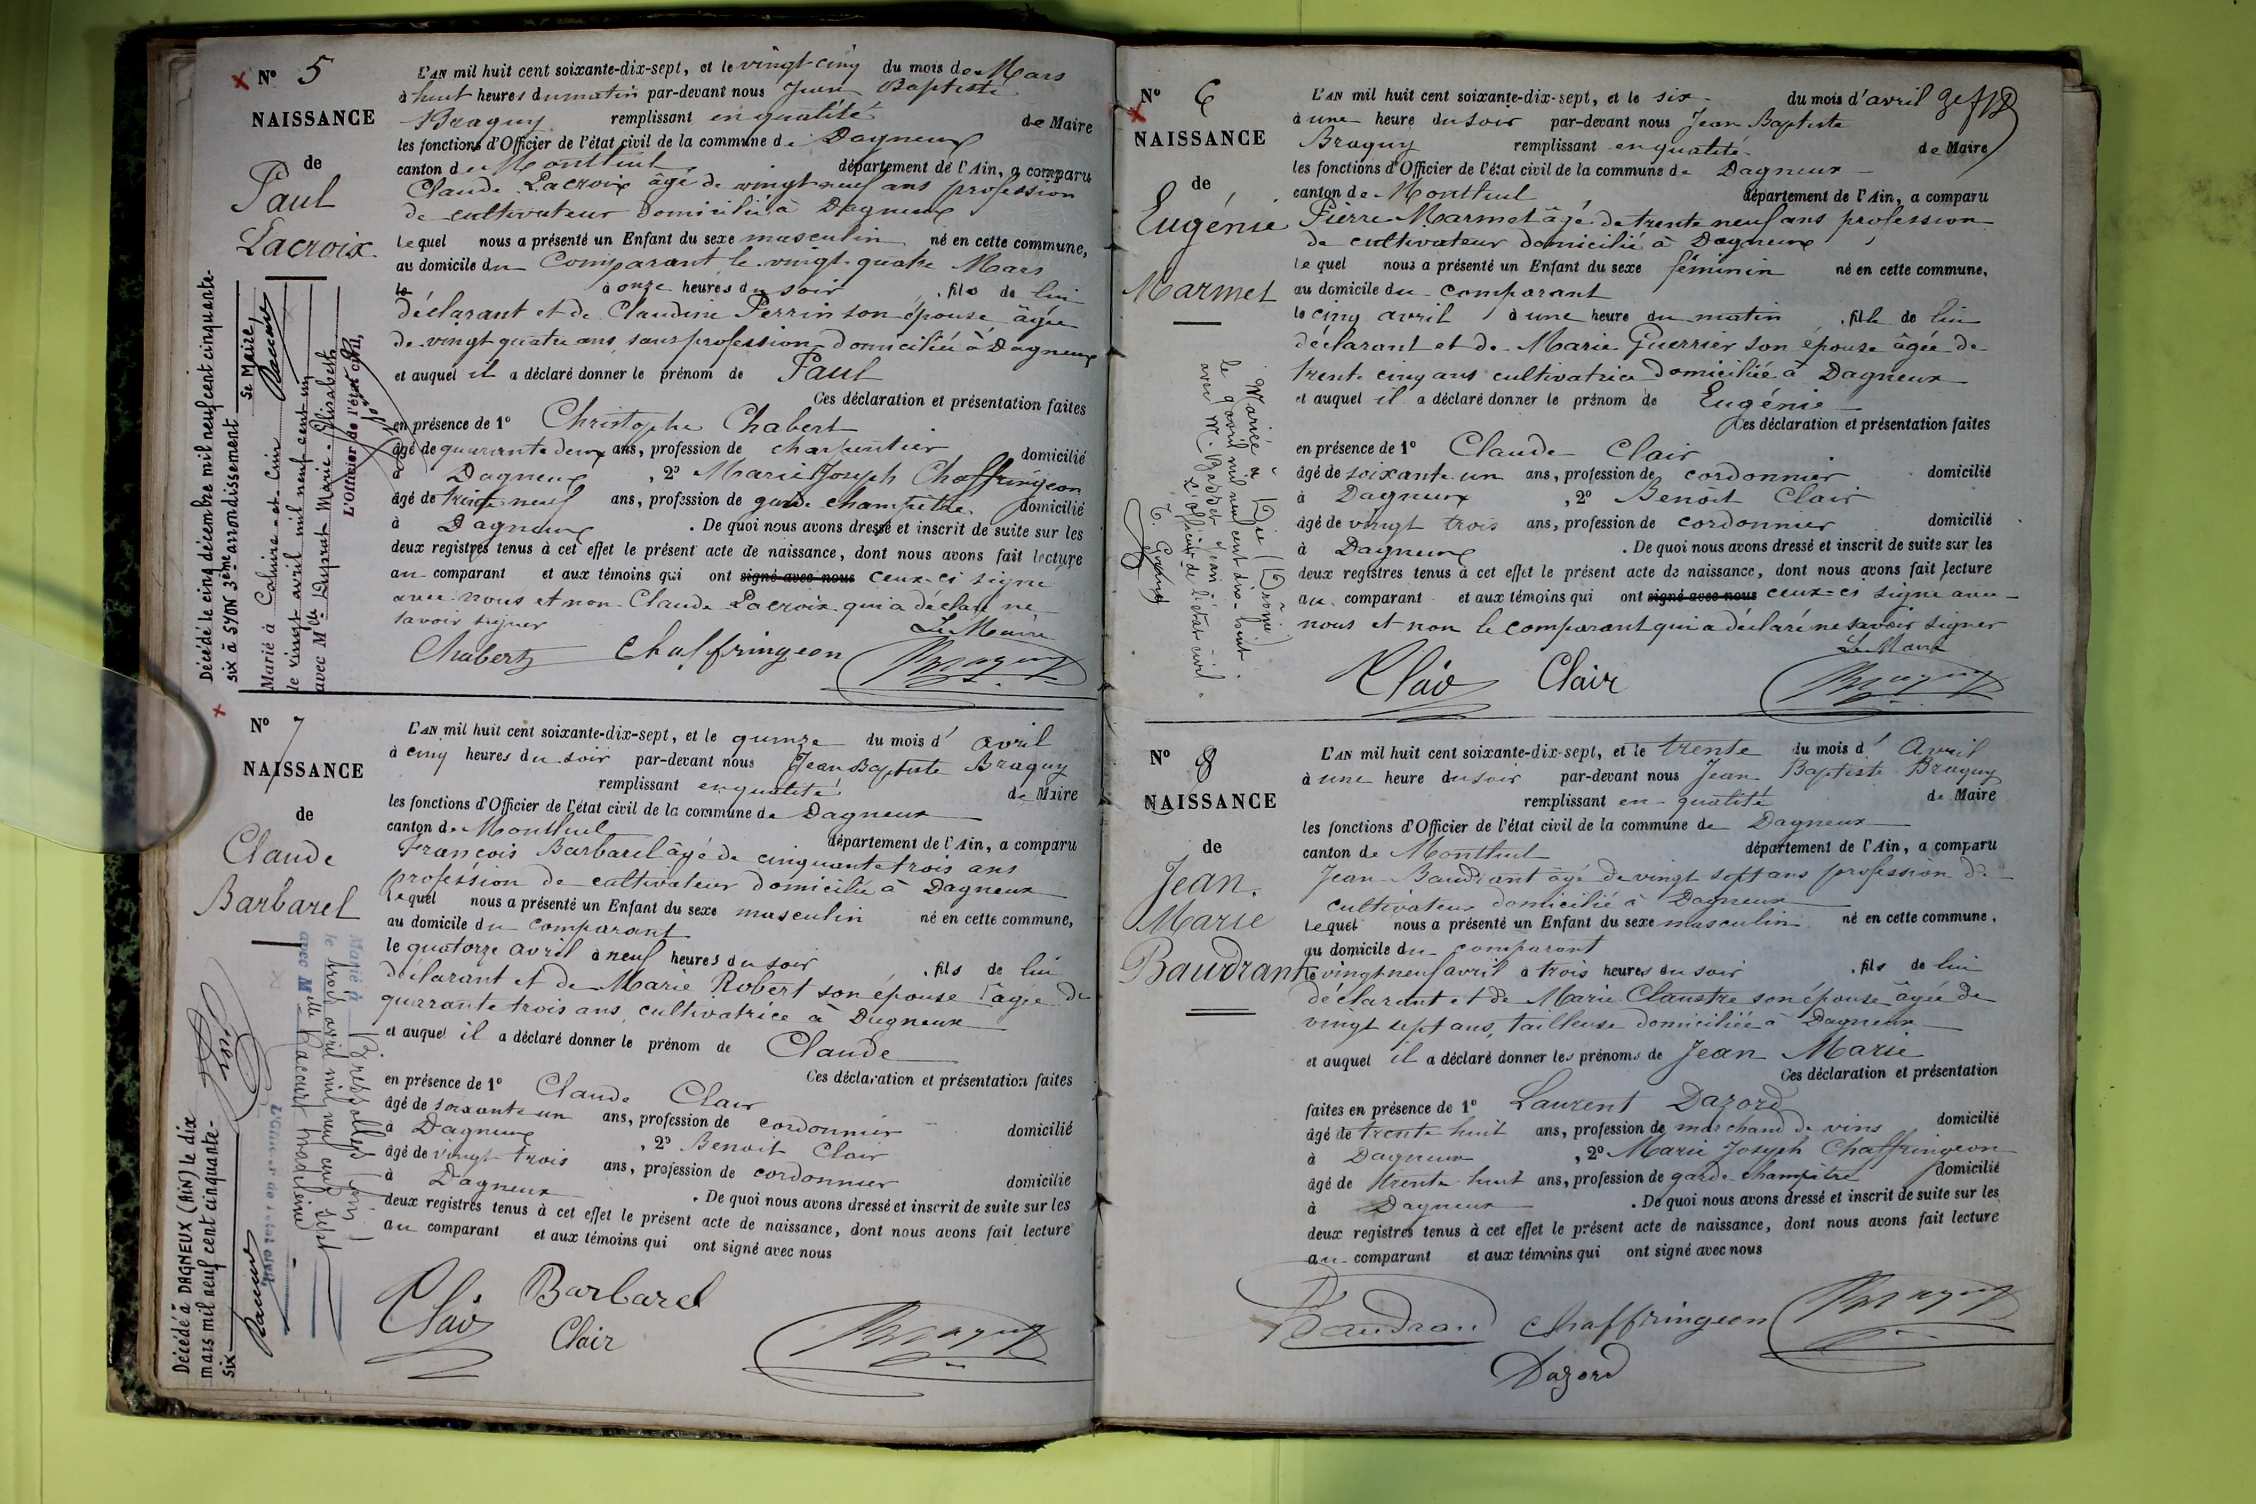 N° 5
NAISSANCE
de
Paul
Lacroix
L'AN mil huit cent soixante-dix-sept, et le vingt-cinq du mois de Mars
à huit heures du matin par-devant nous Jean Baptiste
Braguy remplissant en qualité de Maire
les fonctions d'Officier de l'état civil de la commune de Dagneux
canton de Montluel département de l'Ain, a comparu
Claude Lacroix âgé de vingt neuf ans profession
de cultivateur domicilié à Dagneux
lequel nous a présenté un Enfant du sexe masculin né en cette commune,
au domicile du Comparant le vingt-quatre Mars
le à onze heures du soir, fils de lui
déclarant et de Claudine Perrin son épouse âgée
de vingt quatre ans, sans profession domiciliée à Dagneux
et auquel il a déclaré donner le prénom de Paul
Ces déclaration et présentation faites
en présence de 1° Christophe Chabert
âgé de quarante deux ans, profession de charpentier domicilié
à Dagneux, 2° Marie Joseph Chaffringeon
âgé de trente neuf ans, profession de garde champêtre domicilié
à Dagneux. De quoi nous avons dressé et inscrit de suite sur les
deux registres tenus à cet effet le présent acte de naissance, dont nous avons fait lecture
au comparant et aux témoins qui ont signé avec nous ceux-ci signé
avec nous et non Claude Lacroix qui a déclaré ne
savoir signer
Le Maire
Chabert Chaffringeon Braguy
Décédé le cinq décembre mil neuf cent cinquante-
six à LYON 3ème arrondissement
Le Maire,
Marié à Caluire-et-Cuire
le vingt avril mil neuf cent un
avec Mlle Duprat Marie Elisabeth
L'Officier de l'état civil,
N° 6
NAISSANCE
de
Eugénie
Marmet
L'AN mil huit cent soixante-dix-sept, et le six du mois d'avril
à une heure du soir par-devant nous Jean Baptiste
Braguy remplissant en qualité de Maire
les fonctions d'Officier de l'état civil de la commune de Dagneux
canton de Montluel département de l'Ain, a comparu
Pierre Marmet âgé de trente neuf ans profession
de cultivateur domicilié à Dagneux
lequel nous a présenté un Enfant du sexe féminin né en cette commune,
au domicile du comparant
le cinq avril à une heure du matin, fille de lui
déclarant et de Marie Guerrier son épouse âgée de
trente cinq ans cultivatrice domiciliée à Dagneux
et auquel il a déclaré donner le prénom de Eugénie
Ces déclaration et présentation faites
en présence de 1° Claude Clair
âgé de soixante un ans, profession de cordonnier domicilié
à Dagneux, 2° Benoît Clair
âgé de vingt trois ans, profession de cordonnier domicilié
à Dagneux. De quoi nous avons dressé et inscrit de suite sur les
deux registres tenus à cet effet le présent acte de naissance, dont nous avons fait lecture
au comparant et aux témoins qui ont signé avec nous ceux-ci signé avec
nous et non le comparant qui a déclaré ne savoir signer
Le Maire
Clair Clair Braguy
Mariée à Die (Drôme)
le 9 avril mil neuf cent dix-huit
avec M. Jean
L'officier de l'état civil.
N° 7
NAISSANCE
de
Claude
Barbaret
L'AN mil huit cent soixante-dix-sept, et le quinze du mois d'avril
à cinq heures du soir par-devant nous Jean Baptiste Braguy
remplissant en qualité de Maire
les fonctions d'Officier de l'état civil de la commune de Dagneux
canton de Montluel département de l'Ain, a comparu
François Barbaret âgé de cinquante trois ans
profession de cultivateur domicilié à Dagneux
lequel nous a présenté un Enfant du sexe masculin né en cette commune,
au domicile du comparant
le quatorze avril à neuf heures du soir, fils de lui
déclarant et de Marie Robert son épouse âgée de
quarante trois ans, cultivatrice à Dagneux
et auquel il a déclaré donner le prénom de Claude
Ces déclaration et présentation faites
en présence de 1° Claude Clair
âgé de soixante un ans, profession de cordonnier domicilié
à Dagneux, 2° Benoit Clair
âgé de vingt trois ans, profession de cordonnier domicilié
à Dagneux. De quoi nous avons dressé et inscrit de suite sur les
deux registres tenus à cet effet le présent acte de naissance, dont nous avons fait lecture
au comparant et aux témoins qui ont signé avec nous
Clair Barbaret
Clair Braguy
Décédé à DAGNEUX (AIN) le dix
mars mil neuf cent cinquante-
six
Marié à
le trois avril mil neuf cent sept
avec Mlle
L'Officier de l'état civil,
N° 8
NAISSANCE
de
Jean
Marie
Baudrant
L'AN mil huit cent soixante-dix-sept, et le trente du mois d'Avril
à une heure du soir par-devant nous Jean Baptiste Braguy
remplissant en qualité de Maire
les fonctions d'Officier de l'état civil de la commune de Dagneux
canton de Montluel département de l'Ain, a comparu
Jean Baudrant âgé de vingt sept ans profession de
cultivateur domicilié à Dagneux
lequel nous a présenté un Enfant du sexe masculin né en cette commune,
au domicile du comparant
le vingt neuf avril à trois heures du soir, fils de lui
déclarant et de Marie Claustre son épouse âgée de
vingt sept ans, tailleuse domiciliée à Dagneux
et auquel il a déclaré donner les prénoms de Jean Marie
Ces déclaration et présentation
faites en présence de 1° Laurent Dazord
âgé de trente huit ans, profession de marchand de vins domicilié
à Dagneux, 2° Marie Joseph Chaffringeon
âgé de trente huit ans, profession de garde champêtre domicilié
à Dagneux. De quoi nous avons dressé et inscrit de suite sur les
deux registres tenus à cet effet le présent acte de naissance, dont nous avons fait lecture
au comparant et aux témoins qui ont signé avec nous
Baudrand Chaffringeon Braguy
Dazord